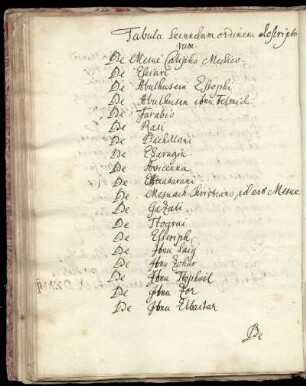 Tabula Secundum ordinem descripto
rum.
De Mesue Calipha Medico.
De Esciari
De Abulhusein Essophi
De Abulhusen ibnu Telmid.
De Farabis
De Rasi
De Bachillani
De Ezaragui
De Avicenna
De
De Mesuach Christiano, id est Mesue
De Gazali
De Thograi
De Esseriph
De Ibnu Saig
De Ibnu Zohar
De Ibnu Thophail
De Ibnu
De Ibnu El Baitar
De